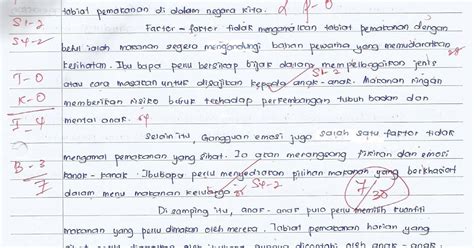 tabiat pemakanan di dalam negara kita. L P-0
S1-2
Factor-factor tidak mengamalkan tabiat pemakanan dengan
S4-2
betul ialah makanan segera mengandungi bahan pewarna yang memudaratkan
kesihatan. Ibu bapa perlu bersikap bijak dalam mempelbagaikan jenis
S1-2
T-0
atau cara masakan untuk disajikan kepada anak-anak. Makanan ringan
K-0
memberikan risiko buruk terhadap perkembangan tubuh badan dan
J-4
mental anak.
Selain itu, Gangguan emosi juga salah satu faktor tidak
B-3
mengamal pemakanan yang sihat. Ia akan merangsang fikiran dan emosi
7
kanak-kanak. Ibubapa perlu menyediakan pilihan makanan yang berkhasiat
dalam menu makanan keluarga. S4-2
7/30
Di samping itu, anak-anak pula perlu memilih kuantiti
makanan yang perlu dimakan oleh mereka. Tabiat pemakanan harian yang